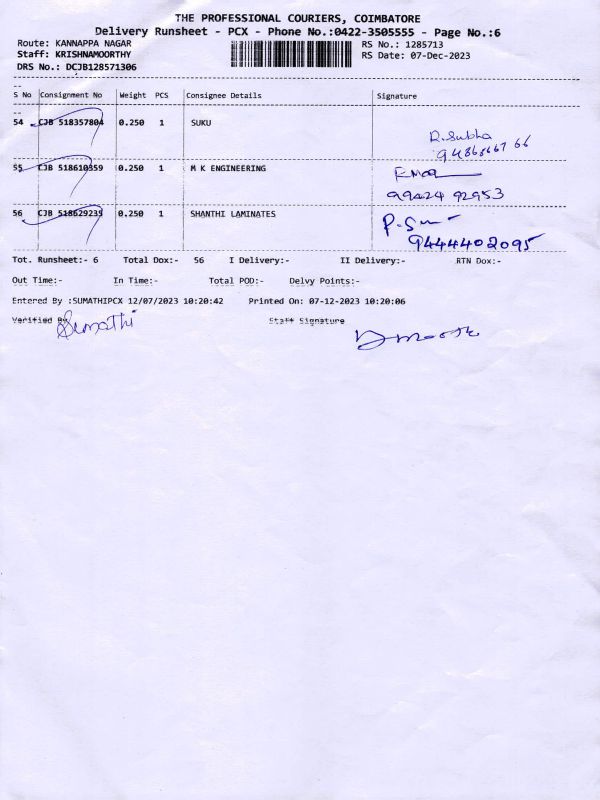 THE PROFESSIONAL COURIERS, COIMBATORE
Delivery Runsheet - PCX - Phone No.:0422-3505555 - Page No.:6
Route: KANNAPPA NAGAR RS No.: 1285713
Staff: KRISHNAMOORTHY RS Date: 07-Dec-2023
DRS No.: DCJB128571306
S No Consignment No Weight PCS Consignee Details Signature
54 CJB 518357804 0.250 1 SUKU
R.Subha
55 CJB 518610359 0.250 1 M K ENGINEERING
99424 92953
56 CJB 518629235 0.250 1 SHANTHI LAMINATES
9444402095
Tot. Runsheet:- 6 Total Dox:- 56 I Delivery:- II Delivery:- RTN Dox:-
Out Time:- In Time:- Total POD:- Delvy Points:-
Entered By :SUMATHIPCX 12/07/2023 10:20:42 Printed On: 07-12-2023 10:20:06
Verified By Staff Signature
Sumathi